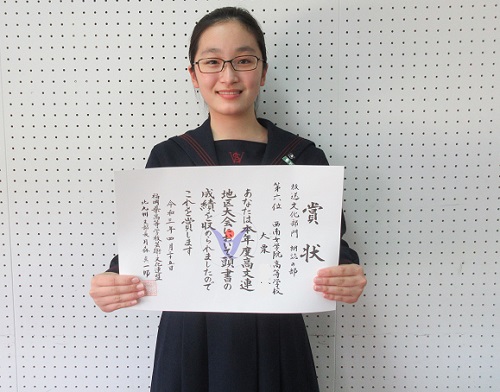 賞状
放送文化部門 朗読の部
第六位 西南女学院高等学校
大栗
あなたは本年度高文連
地区大会において頭書の
成績を収められましたので
これを賞します
令和三年四月二十五日
福岡県高等学校芸術・文化連盟
北九州支部長